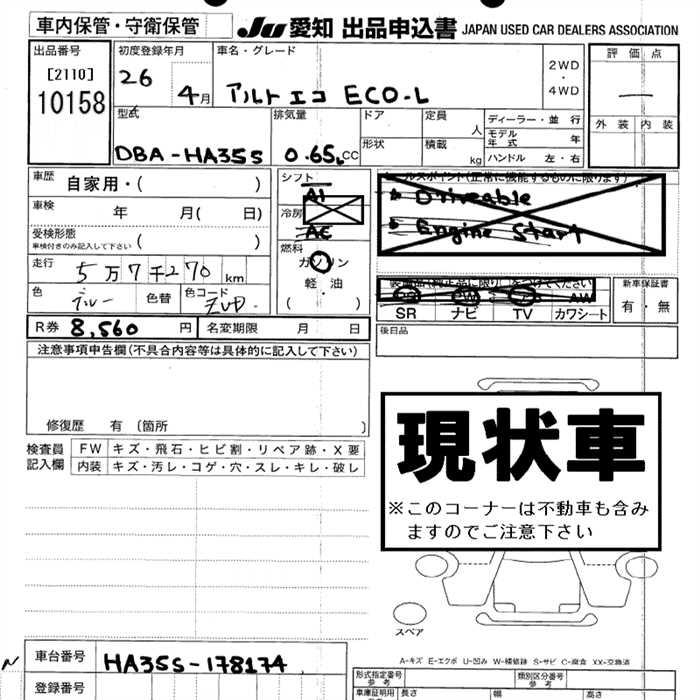 車内保管・守衛保管
JU 愛知 出品申込書 JAPAN USED CAR DEALERS ASSOCIATION
出品番号
[2110]
10158
初度登録年月
26
4月
車名・グレード
アルトエコ ECO-L
2WD
・
4WD
評価点
外装 内装
型式
DBA-HA35S
排気量
0.65L CC
ドア
形状
定員
人
積載
kg
ディーラー・並行
モデル年式 年
ハンドル 左・右
車歴 自家用・( )
車検 年 月( 日)
受検形態
車検付きのみ記入して下さい ( )
走行 5万7千270 km
色 ブルー 色替 色コード
R券 8,560 円 名変期限 月 日
シフト
AT
冷房
AC
燃料
ガソリン
軽油
・
( )
セールスポイント(正常に機能するものに限ります)
Driveable
Engine Start
装備品(純正品に限り)○をつけてください
PS PW AW
SR ナビ TV カワシート
新車保証書
有・無
後日品
注意事項申告欄(不具合内容等は具体的に記入して下さい)
修復歴 有 〔箇所 〕
検査員記入欄
FW キズ・飛石・ヒビ割・リペア跡・X要
内装 キズ・汚レ・コゲ・穴・スレ・キレ・破レ
現状車
※このコーナーは不動車も含み
ますのでご注意下さい
スペア
A-キズ E-エクボ U-凹み W-補修跡 S-サビ C-腐食 XX-交換済
N
車台番号 HA35S-178174
登録番号
形式指定番号
参考
類別区分番号
参考
車庫証明用
長さ
幅
高さ